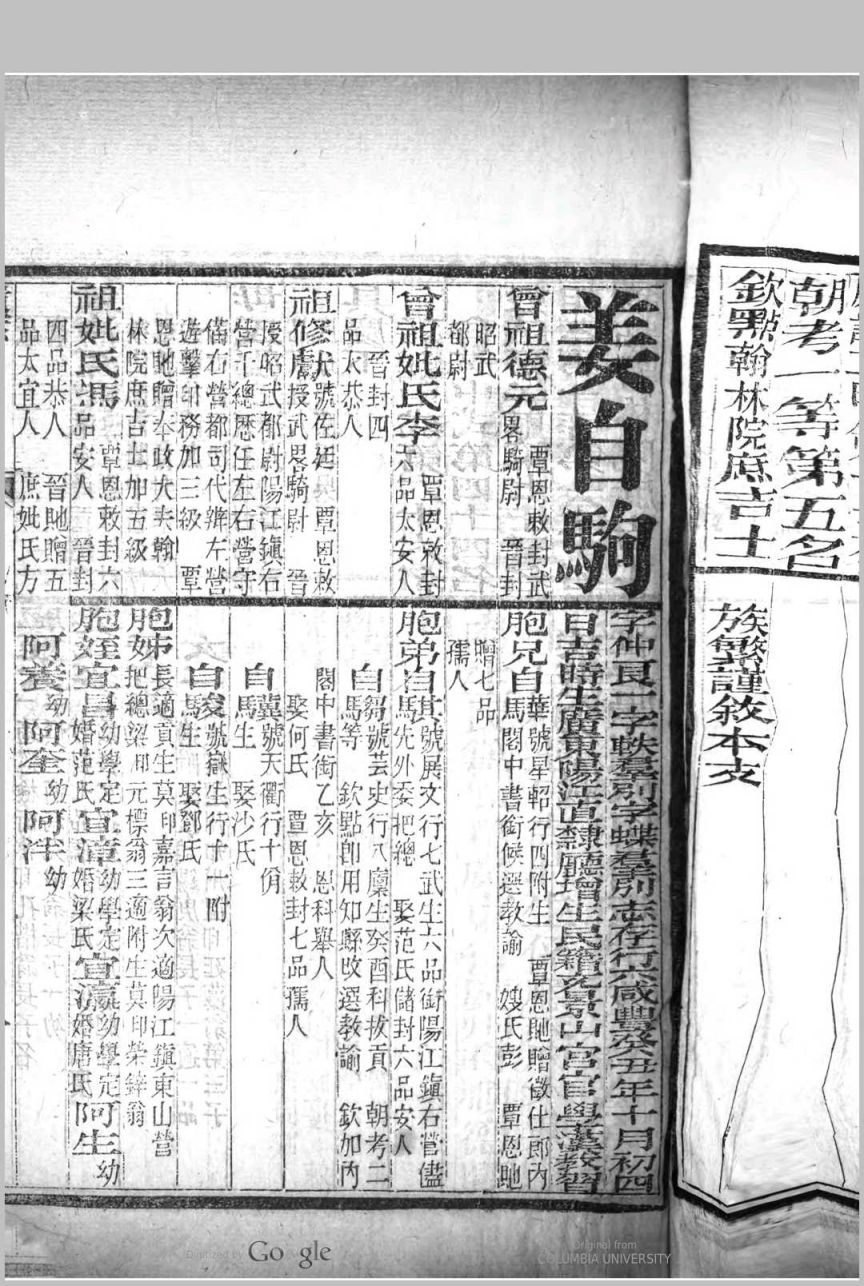 朝考一等第五名
欽點翰林院庶吉士
族繁謹敘本支
姜自駒
字仲良一字軼羣別字蝶羣別志存行六咸豐癸丑年十月初四
日吉時生廣東陽江直隸廳增生民籍充景山宮官學漢教習
曾祖德元
覃恩敕封武
畧騎尉 晉封
昭武
都尉
曾祖妣氏李
覃恩敕封
六品太安人
晉封四
品太恭人
祖修獻
號佐廷 覃恩敕
授武畧騎尉 晉
授昭武都尉陽江鎮右
營千總歷任左右營守
備右營都司代辦左營
遊擊印務加三級 覃
恩貤贈奉政大夫翰
林院庶吉士加五級
祖妣氏馮
覃恩敕封六
品安人 晉封
四品恭人 晉貤贈五
品太宜人 庶妣氏方
胞兄自馬華
號星軺行四附生 覃恩貤贈徵仕郎內
閣中書銜候選教諭 嫂氏彭 覃恩貤
贈七品
孺人
胞弟自馬其
號展文行七武生六品銜陽江鎮右營儘
先外委把總 娶范氏儲封六品安人
自馬芻
號芸史行八廩生癸酉科拔貢 朝考二
等 欽點卽用知縣改選教諭 欽加內
閣中書銜乙亥 恩科舉人
娶何氏 覃恩敕封七品孺人
自馬冀
號天衢行十佾
生 娶沙氏
自駿
號嶽生行十一附
生 娶鄧氏
胞姊
長適貢生莫印嘉言翁次適陽江鎮東山營
胞妹
把總梁印元標翁三適附生莫印榮鋅翁
胞姪宜昌
幼學定
婚范氏
宜漳
幼學定
婚梁氏
宜瀛
幼學定
婚唐氏
阿生幼
阿養幼 阿奎幼 阿泮幼
Digitized by Google
Original from
COLUMBIA UNIVERSITY